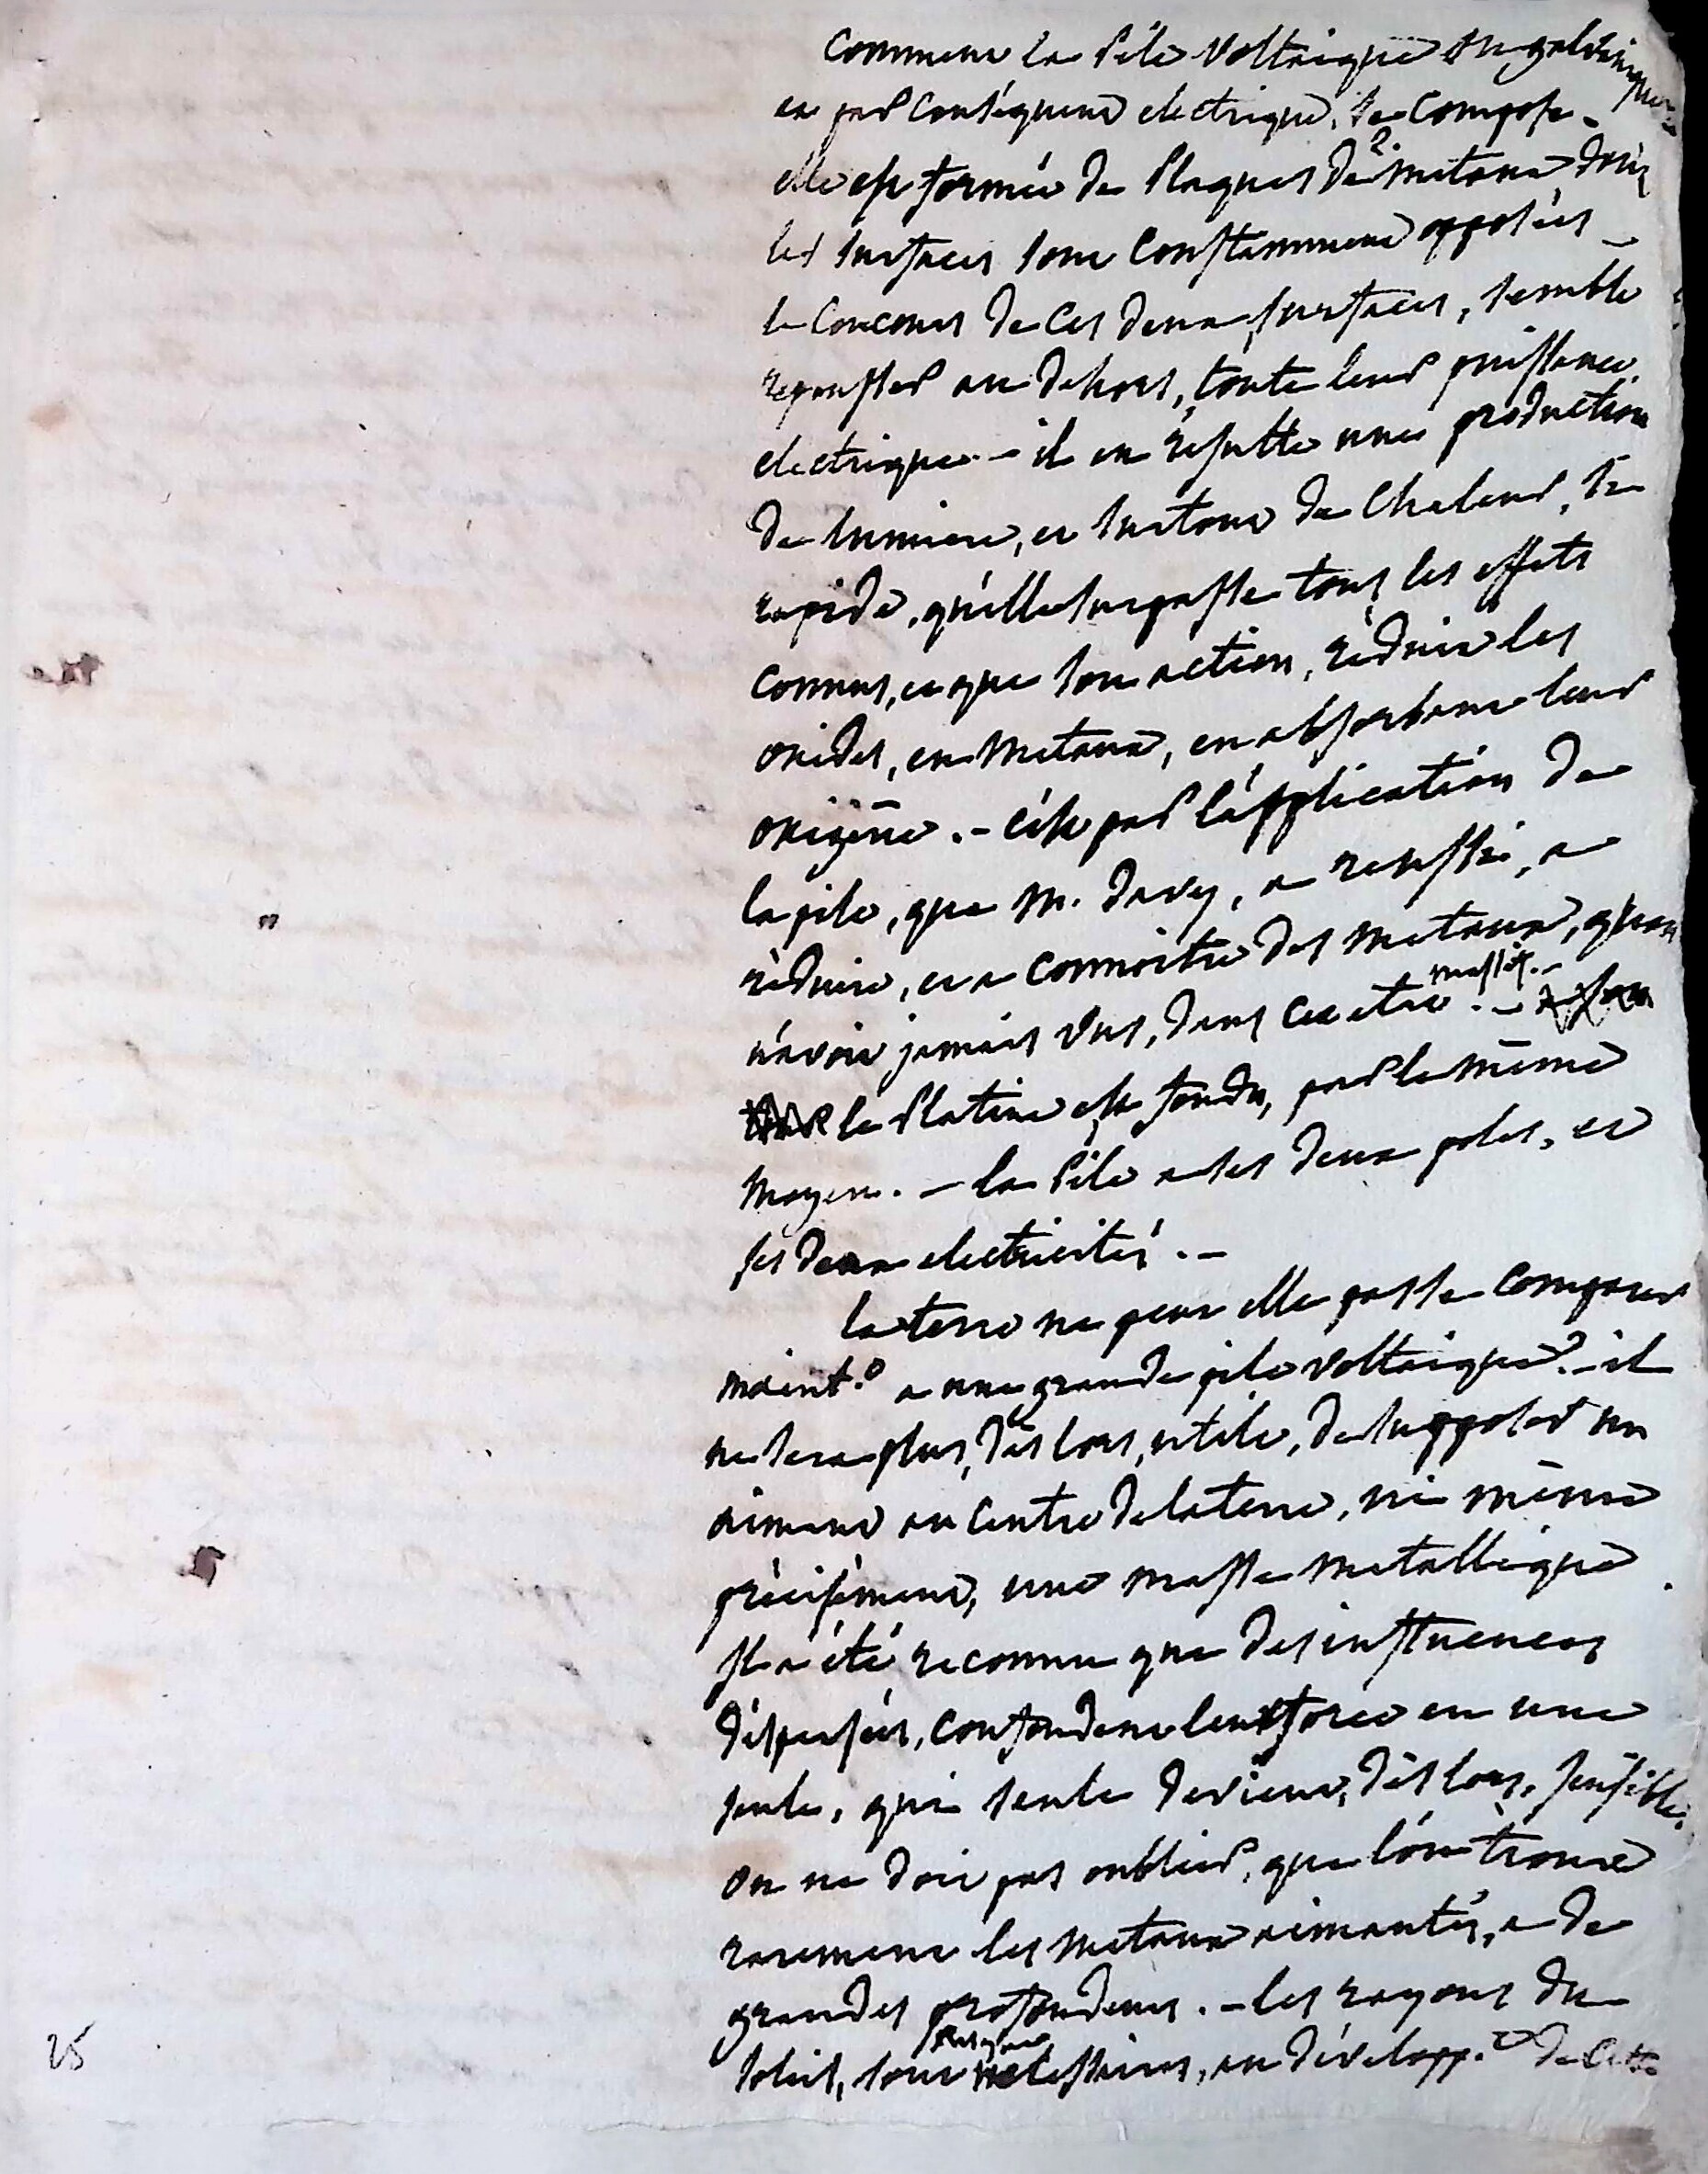 Comment la Pile Voltaique ou galvanique
et par Conséquent electrique, se Compose.
elle est formée de Plaques de 2. metaux dont
les surfaces sont Constamment opposées _
le Concours de Ces deux surfaces, semble
repousser au dehors, toute leur puissance
electrique. – il en resulte une production
de lumiere, et surtout de Chaleur, si
rapide, qu'elle surpasse tous les effets
connus, et que son action, réduit les
oxides, en metaux, en absorbant leur
oxigène. – c'est par l'application de
la pile, que M. Davy, a reussi, a
réduire, et a connoitre des metaux, qu'on
n'avoit jamais vus, dans cet etat massif. –
le Platine est fondu, par le même
moyen. – la Pile a ses deux poles, et
ses deux electricités. –
la terre ne peut elle pas se comparer
maint.t a une grande pile voltaique? – il
ne sera plus, dès lors, utile, de supposer un
aimant au Centre de la terre, ni même
précisément, une masse metallique
Il a été reconnu que des influences
dispersées, confondent leur force en une
seule, qui seule devient, dès lors, sensible.
on ne doit pas oublier, que l'on trouve
rarement les metaux aimantés, a de
grandes profondeurs. – les rayons du
soleil, sont presque necessaires, au développ.t de Cette
25